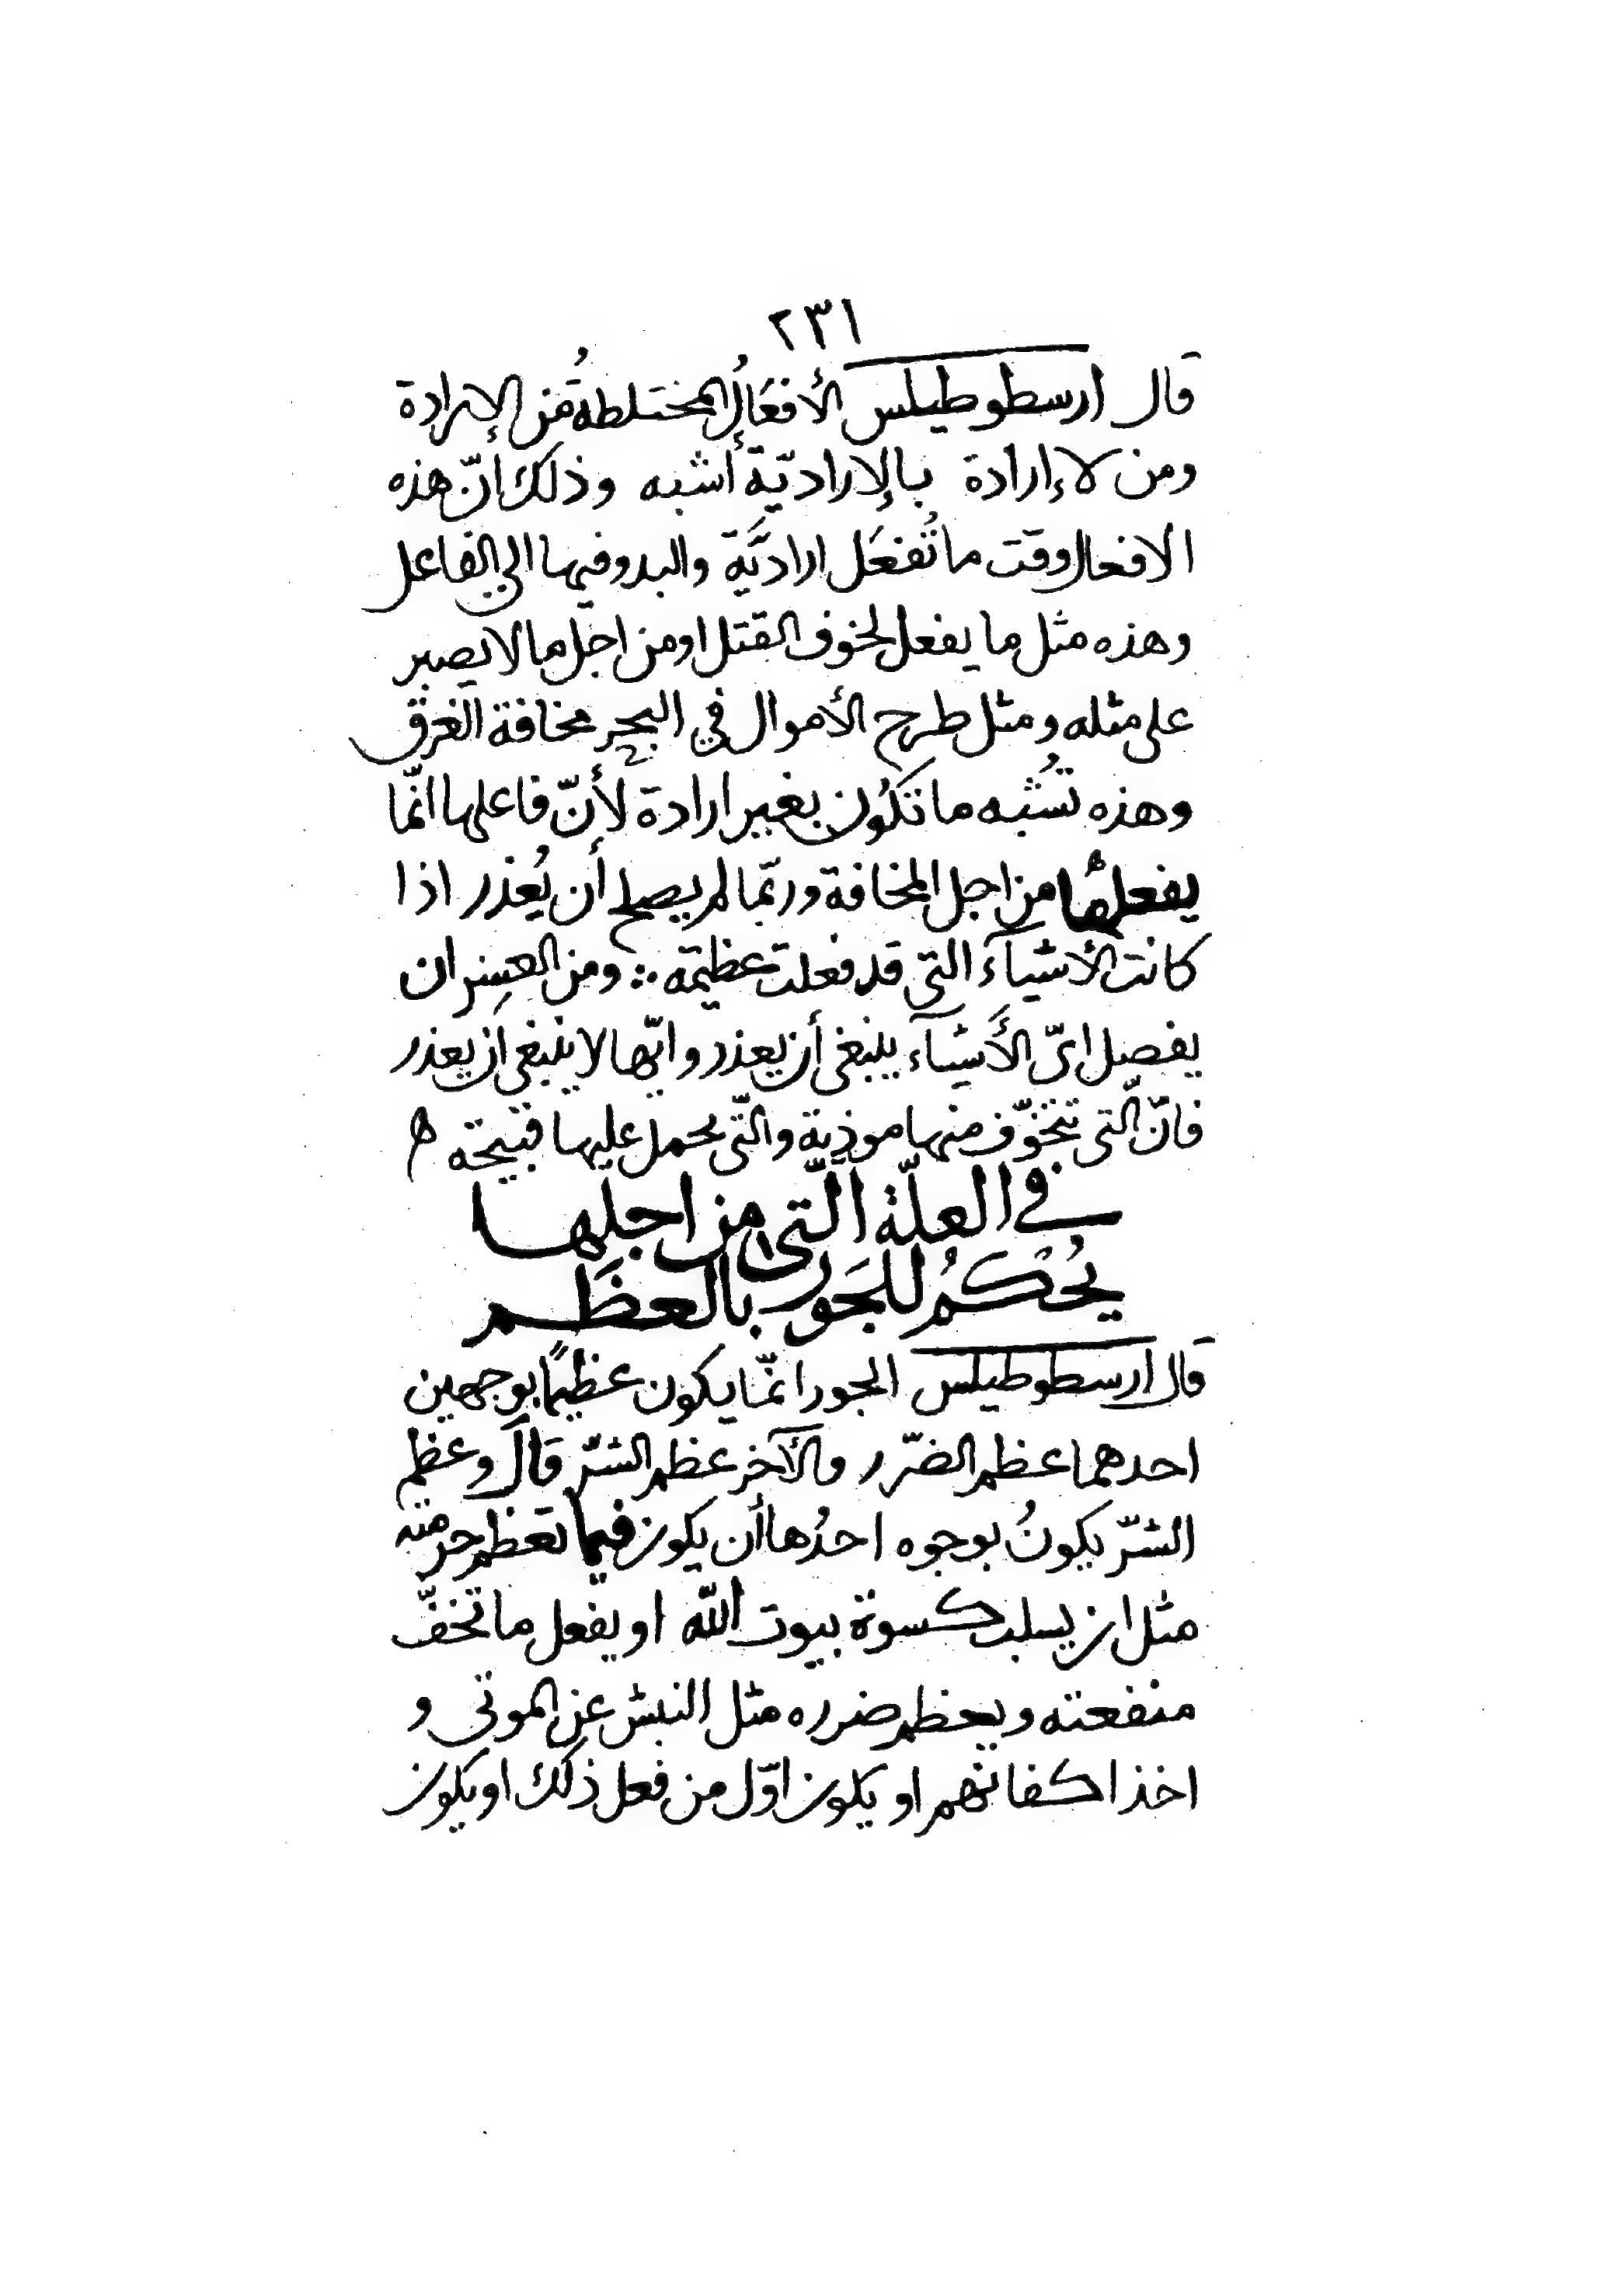 ٢٣١
قال ارسطوطيلس الأفعَالُ المختلطةُ من الإرادة
ومن لا إرادة بالإراديّة أشبه وذلك انّ هذه
الافعال وقت ما تُفعَل اراديَّة والبدو فيها الي الفاعل
وهذه مثل ما يفعل لخوف القتل او من اجل ما لا يصبر
على مثله ومثل طرح الأموال في البحر مخافة الغرق
وهذه تُشبه ما تكُون بغير ارادة لأنّ فاعلها انّما
يفعلها من اجل المخافة وربّما لم يصلح أن يُعذر اذا
كانت الأشيآء التى قد فعلت عظيمة ومن العسِر ان
يفصل ايّ الأَشيآء ينبغى أن يعذر وايّها لا ينبغى ان يعذر
فانّ التى تتخوّف منها موذية والتّى يحمل عليها قبيحة ه
في العلّة الّتى من اجلها
يُحْكمُ للجَور بالعظَم
قال ارسطوطيلس الجور انّما يكون عظيمًا بوجهين
احدهما عظم الضّرر والآخر عظم الشرّ قَالَ وعظم
الشرّ يكونُ بوجوه احدُها أن يكون فيما تعظم حرمته
مثل ان يسلب كسوة بيوت اللّه او يفعل ما تخفّ
منفعته ويعظم ضرره مثل النبش عن الموتى و
اخذ اكفانهم او يكون اوّل من فعل ذلك او يكون